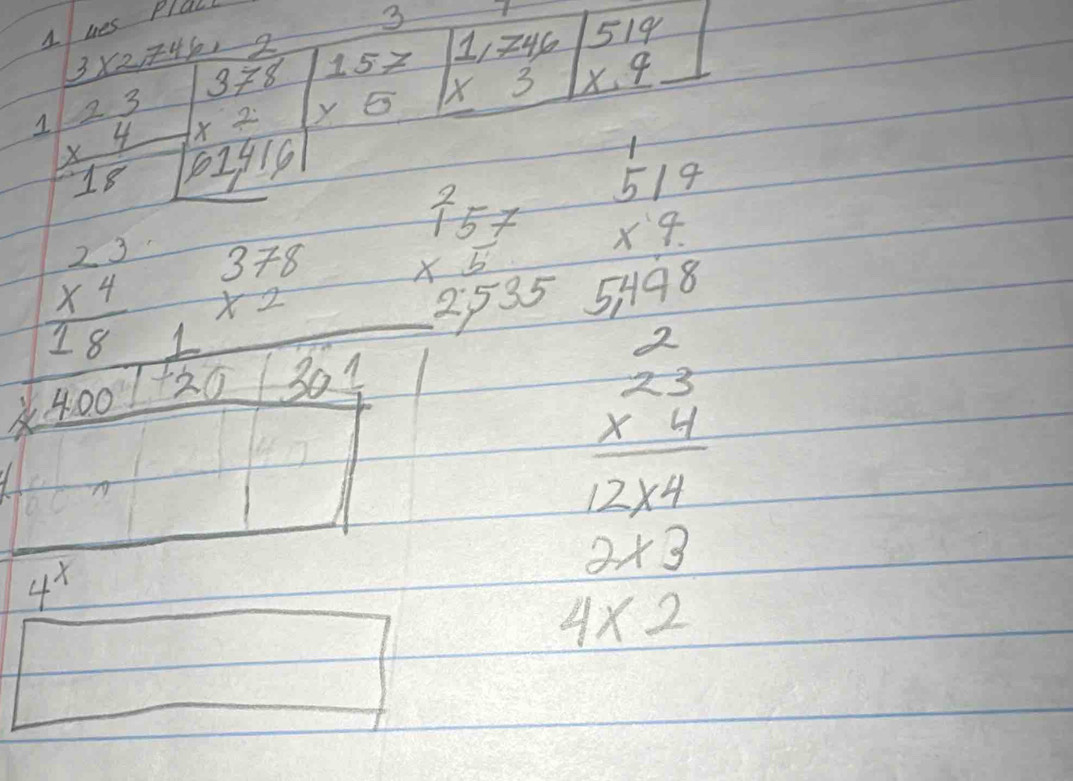 1 ues Place
3x2,746. 2 3
23 378 157 1,746 519
1 x 4 x 2 x 5 x 3 x. 9
18 61,416
1
519
x 9.
5,498
2
157
x 5
2,535
23 378
x 4 x 2
18 1
x 400 +20 301
2
23
x 4
12x4
2x3
4x2
4x